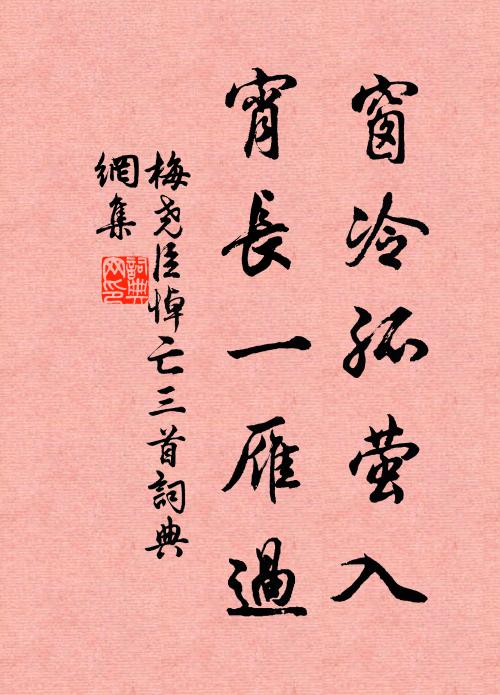 窗冷孤萤入
宵長一雁過
梅尧臣悼亡三首詞典
網集
詞典
网印